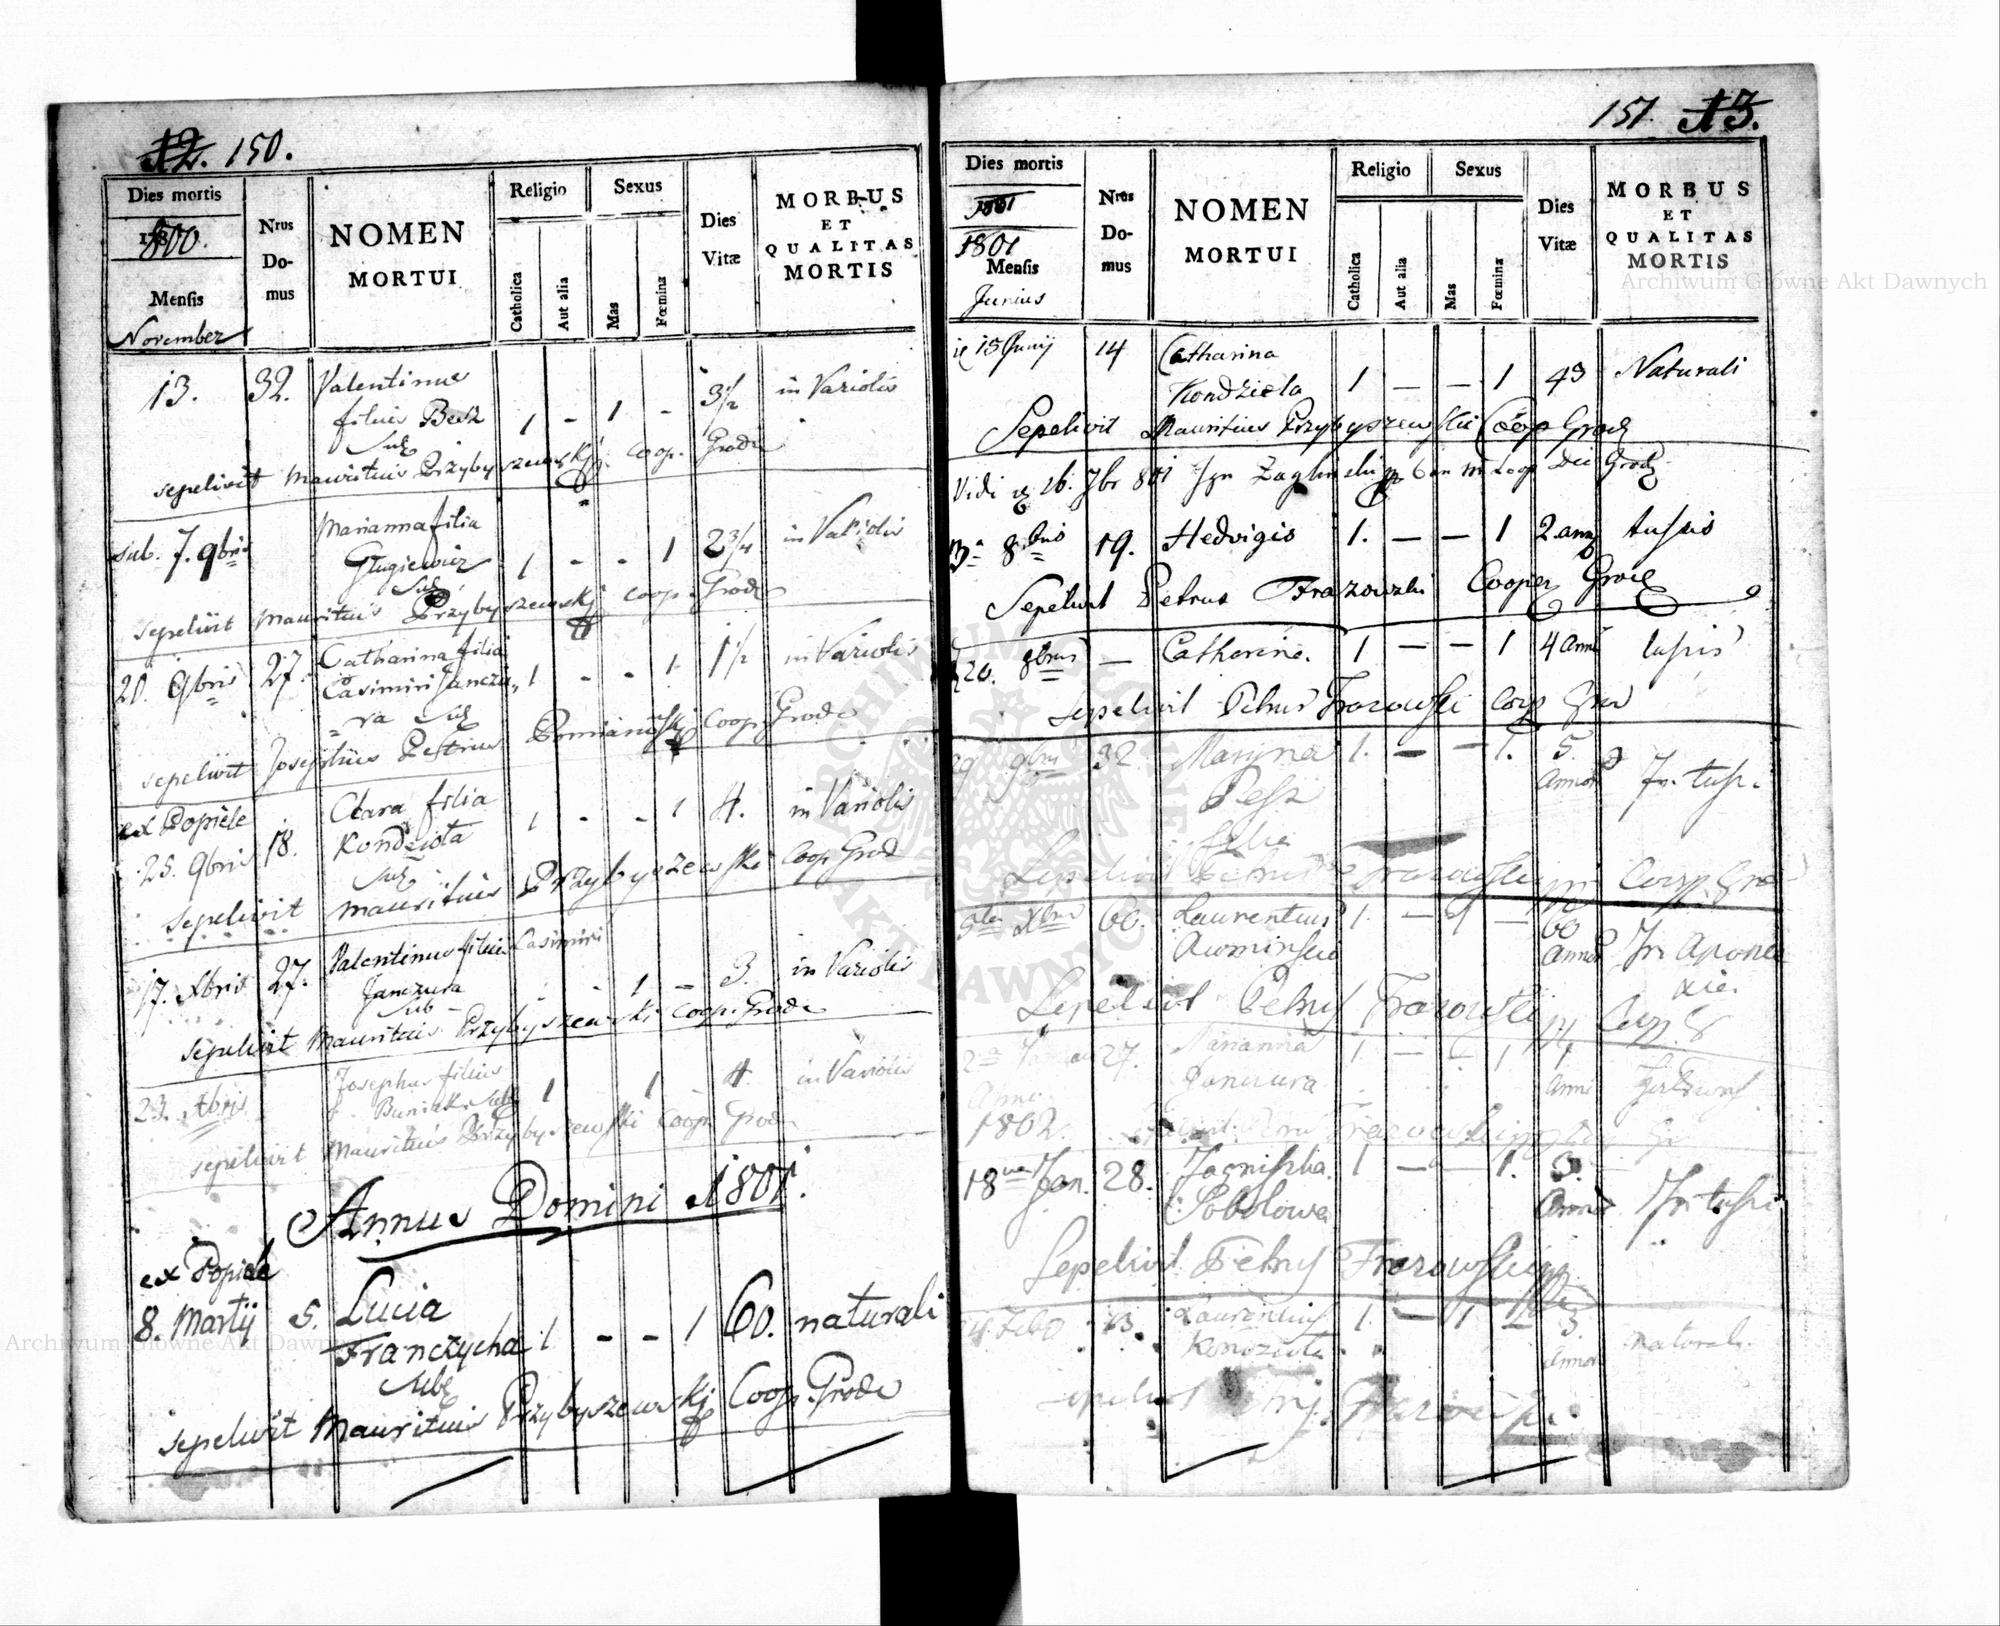 12. 150.
Dies mortis
1800.
Mensis
November
Nrus Do-mus
NOMEN MORTUI
Religio
Catholica
Aut alia
Sexus
Mas
Fœmina
Dies Vitæ
MORBUS ET QUALITAS MORTIS
13. 32. Valentinus 3½ in Variolis
filius Besz 1 - 1 -
sepelivit Mauritius Przybyszewskj coop. Grode
Marianna filia
sub. 7. 9bris Gługiewicz 1 - - 1 2¾ in Variolis
sepelivit Mauritius Przybyszewskj coop. Grode
20. 9bris 27. Catharina filia 1½ in Variolis
Casimiri Janczu- 1 - - 1
ra
sepelivit Josephus Petrus Pomianowskj Coop. Grode
ex Popiele Clara filia
25. 9bris 18. Kondziota 1 - - 1 4. in Variolis
sepelivit Mauritius Przybyszewski Coop Grod
17. Xbris 27. Valentinus filius Casimiri
Janczura - 1 - 3. in Variolis
sepelivit Mauritius Przybyszewski coop. Grode
23. Xbris Josephus filius 1 1 4 in Variolis
Buniak
sepelivit Mauritius Przybyszewski Coop. Grode
Annus Domini 1801.
ex Popiele
8. Martij 5. Lucia
Franczycha 1 - - 1 60. naturali
sepelivit Mauritius Przybyszewskj Coop. Grode
151. 13.
Dies mortis
1801
1801
Mensis
Junius
Nrus Do-mus
NOMEN MORTUI
Religio
Catholica
Aut alia
Sexus
Mas
Fœmina
Dies Vitæ
MORBUS ET QUALITAS MORTIS
15 Junij 14 Catharina
Kondziela 1 — — 1 43 Naturali
Sepelivit Mauritius Przybyszewski Coop Grod
Vidi 26. 7br 801
8bris 19. Hedvigis 1. — — 1 2 ann tussis
Sepelivit Petrus Frazowski Cooper Grode
20. 9bris — Catherine. 1 — — 1 4 anni tussis
Sepelivit Petrus Frazowski Coop Grod
29 9bris 32 Maryna 1. — — 1. 5.
Pesz Annor Jn tussi
filia
Sepelivit Petrus Frazowski Coop. Gro
Xbris 60. Laurentius 1. — 1 — 60
Anno Jn Apople
xie
Sepelivit Petrus Frazowski Coop. G
27. Marianna 1 — — 1 1
Janczura Anni
Anno
1802.
Frazowski
18va Jan. 28. Jagnishka 1 — — 1. 3.
Sobolowa Annos Jn tussi
Sepelivit Petrus Frazowski
4. Febr 13. Laurentius 1. — 1 — 5.
Kondziota Annor naturali
Archiwum Główne Akt Dawnych
Archiwum Główne Akt Dawnych
ARCHIWUM GŁÓWNE AKT DAWNYCH